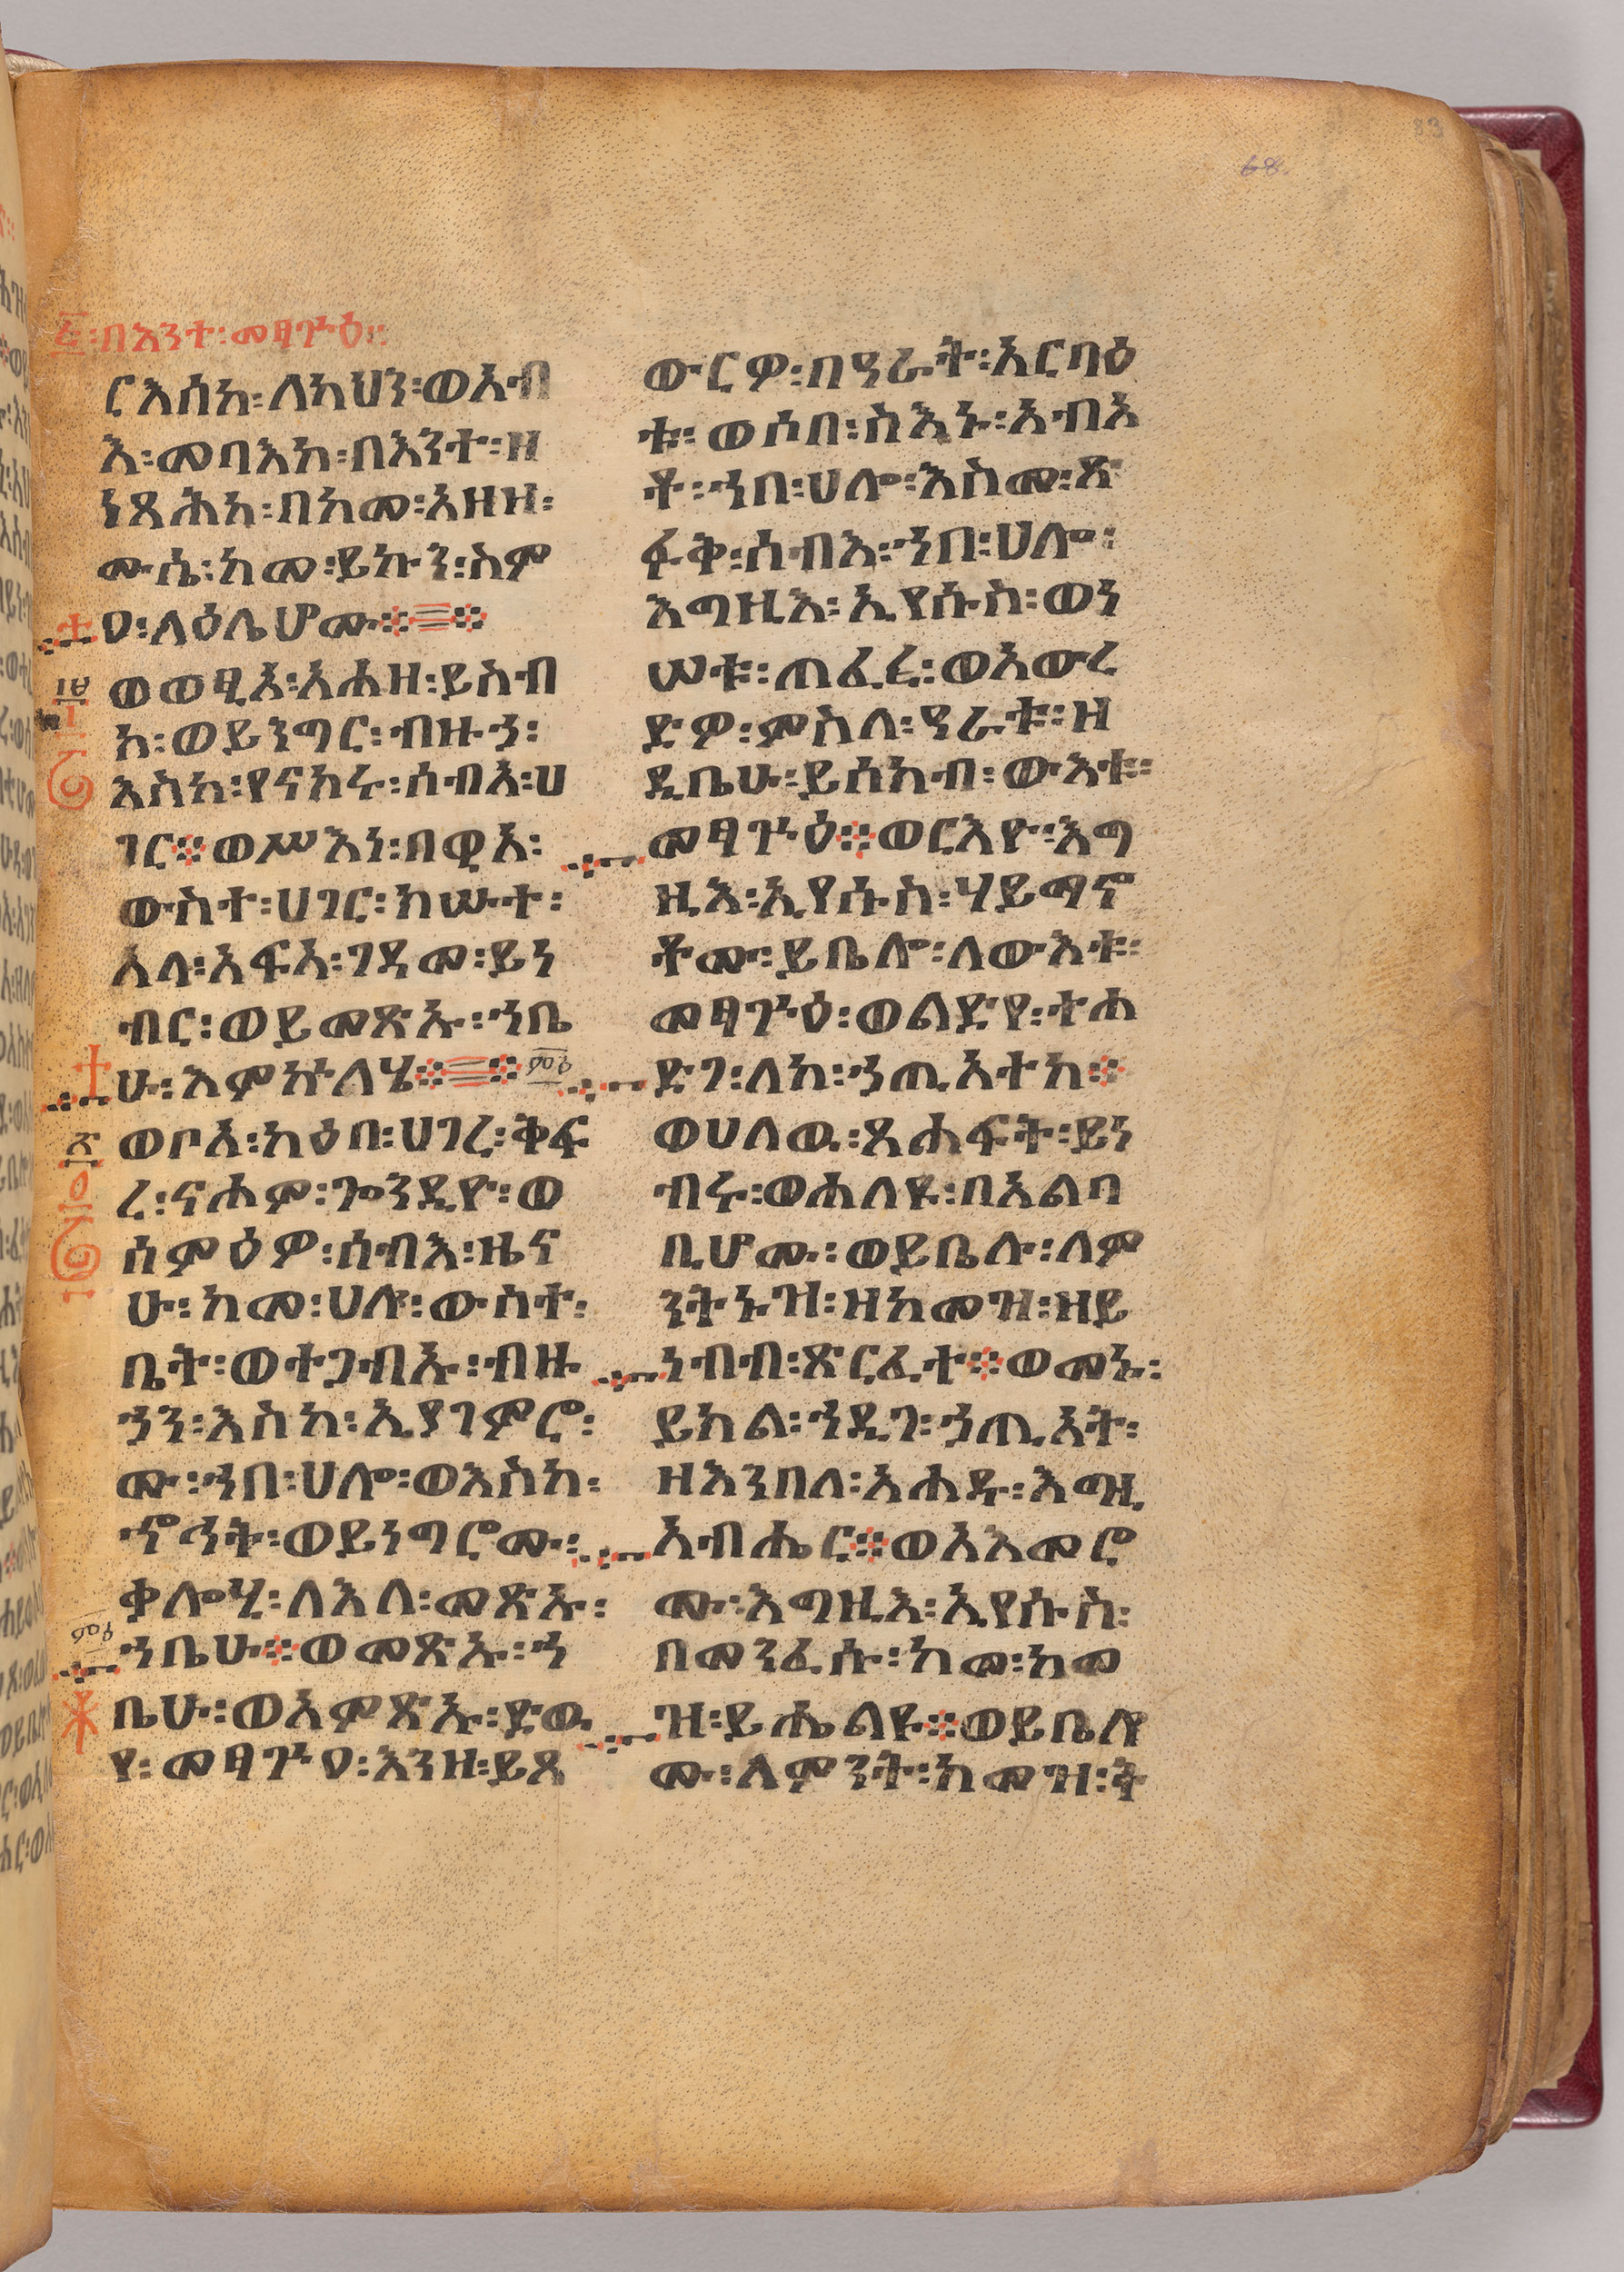 ፭፡በእንተ፡መፃጕዕ፡፡
ርእሰከ፡ለካህን፡ወአብ
እ፡መባአከ፡በእንተ፡ዘ
ነጻሕከ፡በከመ፡አዘዘ፡
ሙሴ፡ከመ፡ይኩን፡ስም
ዐ፡ለዕሌሆሙ፨፨
ወወፂኦ፡አሐዘ፡ይስብ
ክ፡ወይንግር፡ብዙኃ፡
እስከ፡የናክሩ፡ሰብአ፡ሀ
ገር፨ወሥእነ፡በዊአ፡
ውስተ፡ሀገር፡ክሡተ፡
አላ፡አፍአ፡ገዳመ፡ይነ
ብር፡ወይመጽኡ፡ኀቤ
ሁ፡እምኵለሄ፨፨
ወቦአ፡ካዕበ፡ሀገረ፡ቅፍ
ረ፡ናሖም፡ጐንዲዮ፡ወ
ሰምዕዎ፡ሰብእ፡ዜና
ሁ፡ከመ፡ሀሎ፡ውስተ፡
ቤት፡ወተጋብኡ፡ብዙ
ኃን፡እስከ፡ኢያገምሮ፡
ሙ፡ኀበ፡ሀሎ፡ወእስከ፡
ኆኅት፡ወይነግሮሙ፡
ቃሎሂ፡ለእለ፡መጽኡ፡
ኀቤሁ፨ወመጽኡ፡ኀ
ቤሁ፡ወአምጽኡ፡ድዉ
የ፡መፃጕዐ፡እንዘ፡ይጸ
ውርዎ፡በዓራት፡አርባዕ
ቱ፡ወሶበ፡ስእኑ፡አብአ
ቶ፡ኀበ፡ሀሎ፡እስመ፡ጽ
ፋቅ፡ሰብእ፡ኀበ፡ሀሎ፡
እግዚእ፡ኢየሱስ፡ወነ
ሠቱ፡ጠፈረ፡ወአውረ
ድዎ፡ምስለ፡ዓራቱ፡ዘ
ዲቤሁ፡ይሰክብ፡ውእቱ፡
መፃጕዕ፨ወርእዮ፡እግ
ዚእ፡ኢየሱስ፡ሃይማኖ
ቶሙ፡ይቤሎ፡ለውእቱ፡
መፃጕዕ፡ወልድየ፡ተሐ
ድገ፡ለከ፡ኀጢአተከ፨
ወሀለዉ፡ጸሐፍት፡ይነ
ብሩ፡ወሐለዩ፡በአልባ
ቢሆሙ፡ወይቤሉ፡ለም
ንትኑዝ፡ዘከመዝ፡ዘይ
ነብብ፡ጽርፈተ፨ወመኑ፡
ይክል፡ኀዲገ፡ኃጢአት፡
ዘእንበለ፡አሐዱ፡እግዚ
አብሔር፨ወአእመሮ
ሙ፡እግዚእ፡ኢየሱስ፡
በመንፈሱ፡ከመ፡ከመ
ዝ፡ይሔልዩ፨ወይቤሎ
ሙ፡ለምንት፡ከመዝ፡ት